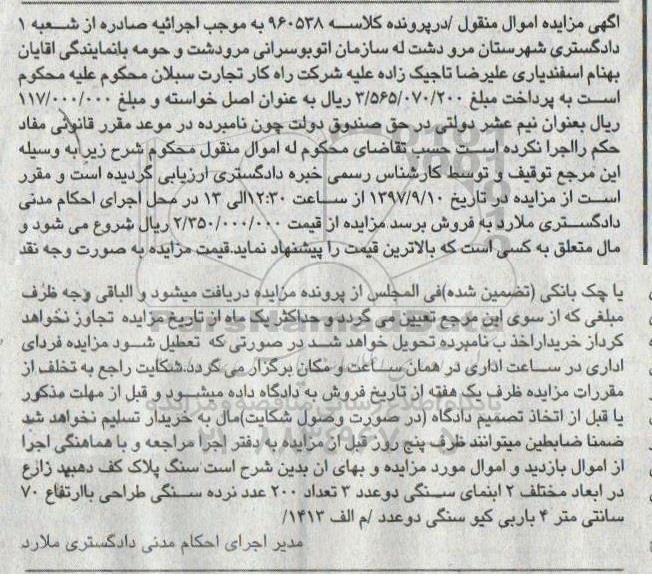 آگهی مزایده اموال منقول /درپرونده کلاسه ۹۶۰۵۳۸ به موجب اجرائیه صادره از شعبه ۱
دادگستری شهرستان مرو دشت له سازمان اتوبوسرانی مرودشت و حومه بانمایندگی اقایان
بهنام اسفندیاری علیرضا تاجیک زاده علیه شرکت راه کار تجارت سبلان محکوم علیه محکوم
است به پرداخت مبلغ ۳/۵۶۵/۰۷۰/۲۰۰ ریال به عنوان اصل خواسته و مبلغ ۱۱۷/۰۰۰/۰۰۰
ریال بعنوان نیم عشر دولتی در حق صندوق دولت چون نامبرده در موعد مقرر قانونی مفاد
حکم رااجرا نکرده است حسب تقاضای محکوم له اموال منقول محکوم شرح زیر به وسیله
این مرجع توقیف و توسط کارشناس رسمی خبره دادگستری ارزیابی گردیده است و مقرر
است از مزایده در تاریخ ۱۳۹۷/۹/۱۰ از ساعت ۱۲:۳۰الی ۱۳ در محل اجرای احکام مدنی
دادگستری ملارد به فروش برسد.مزایده از قیمت ۲/۳۵۰/۰۰۰/۰۰۰ ریال شروع می شود و
مال متعلق به کسی است که بالاترین قیمت را پیشنهاد نماید.قیمت مزایده به صورت وجه نقد
یا چک بانکی (تضمین شده)فی المجلس از پرونده مزایده دریافت میشود و الباقی وجه ظرف
مبلغی که از سوی این مرجع تعیین می گردد و حداکثر یک ماه از تاریخ مزایده تجاوز نخواهد
کرداز خریداراخذ ب نامبرده تحویل خواهد شد در صورتی که تعطیل شود مزایده فردای
اداری در ساعت اداری در همان ساعت و مکان برگزار می گردد.شکایت راجع به تخلف از
مقررات مزایده ظرف یک هفته از تاریخ فروش به دادگاه داده میشود و قبل از مهلت مذکور
یا قبل از اتخاذ تصمیم دادگاه (در صورت وصول شکایت)مال به خریدار تسلیم نخواهد شد
ضمنا ضابطین میتوانند ظرف پنج روز قبل از مزایده به دفتر اجرا مراجعه و با هماهنگی اجرا
از اموال بازدید و اموال مورد مزایده و بهای ان بدین شرح است سنگ پلاک کف دهبید زارع
در ابعاد مختلف ۲ ابنمای سنگی دوعدد ۳ تعداد ۲۰۰ عدد نرده سنگی طراحی باارتفاع ۷۰
سانتی متر ۴ باربی کیو سنگی دوعدد /م الف ۱۴۱۳/
مدیر اجرای احکام مدنی دادگستری ملارد
ParsNamadData